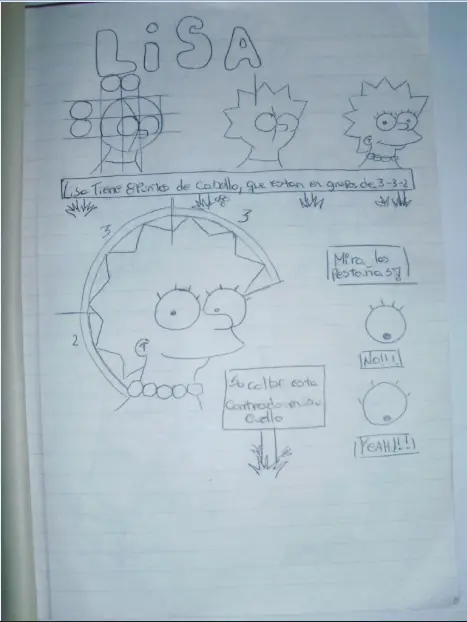 LiSA
Lisa Tiene 8 Puntos de Cabello, que estan en grupos de 3-3-2
3
3
2
Mira las
Pestañas
No!!!
Su collar esta
Centrado en su
Cuello
YEAH!!!